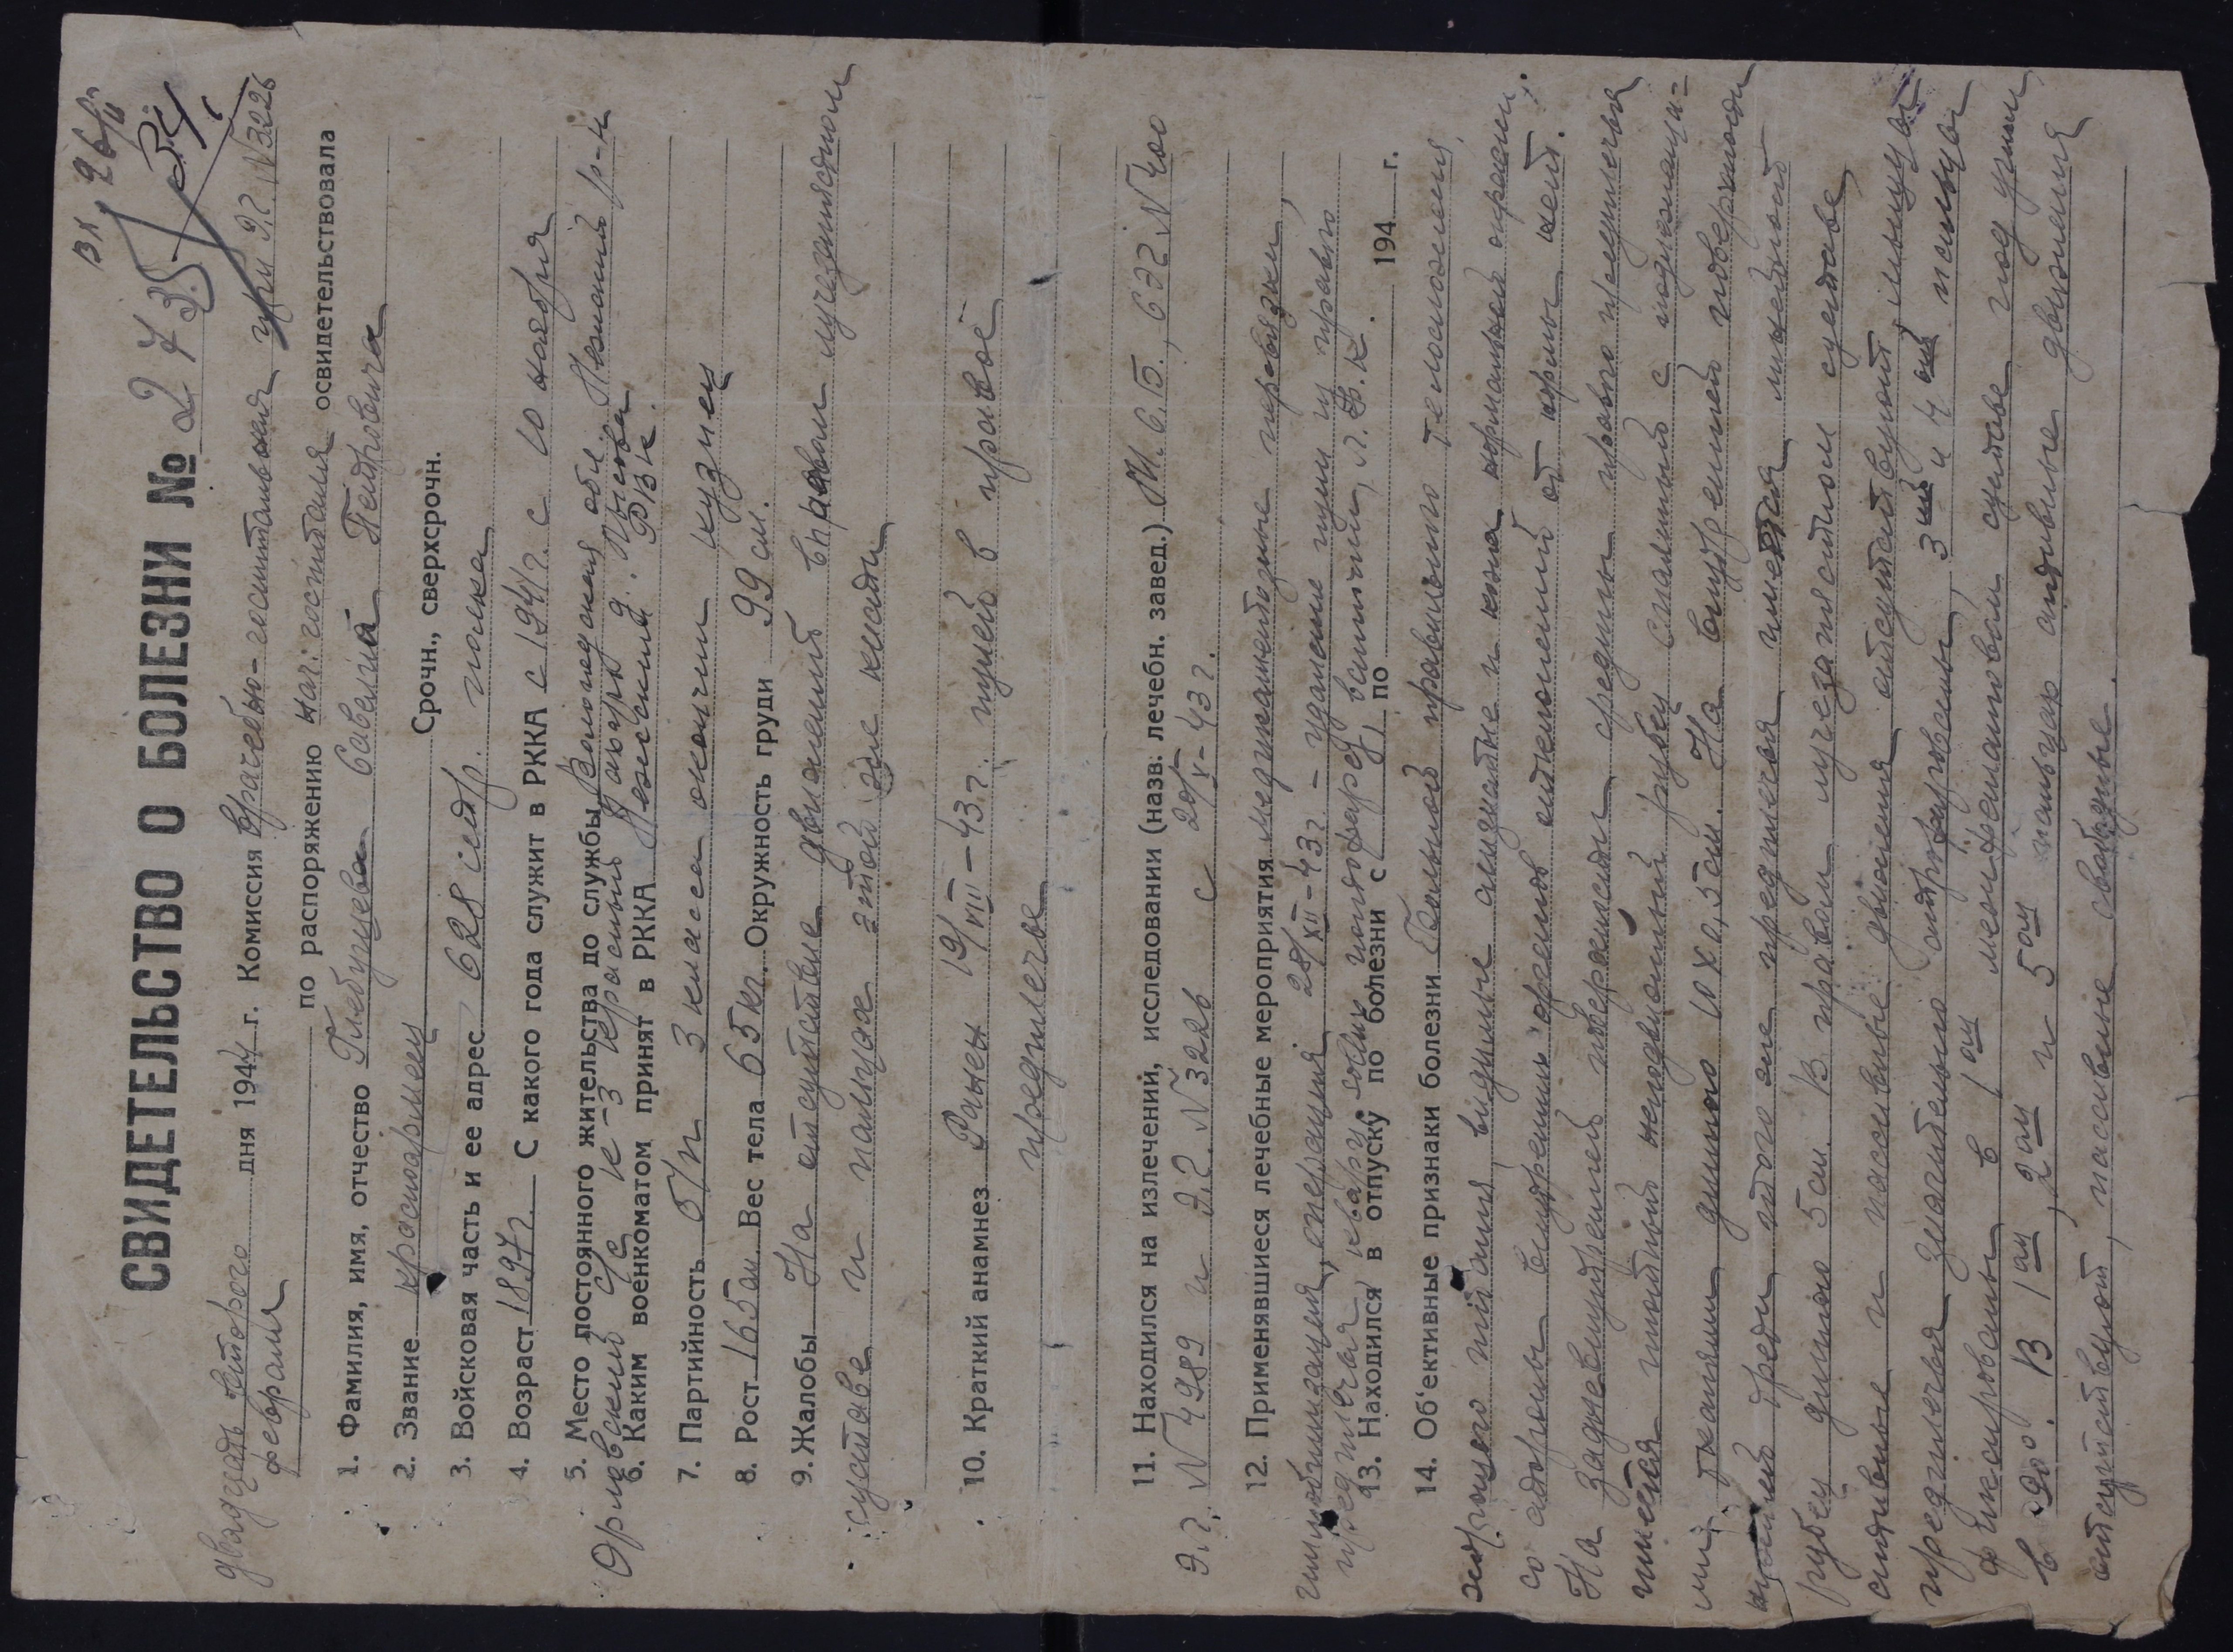 ВК 9 6/II
СВИДЕТЕЛЬСТВО О БОЛЕЗНИ № 273
34
двадцать второго дня 1944 г. Комиссия врачебно-госпитальная при Э.Г. №3226
февраля по распоряжению нач. госпиталя освидетельствовала
1. Фамилия, имя, отчество Глебущева Савелия Петровича
2. Звание красноармеец Срочн., сверхсрочн.
3. Войсковая часть и ее адрес 628 полка
4. Возраст 1897г. С какого года служит в РККА с 1941г. с 10 ноября
5. Место постоянного жительства до службы Вологодская обл. Лежский р-н
с/с к-з Красный Пахарь д.
6. Каким военкоматом принят в РККА Лежским РВК.
7. Партийность б/п 3 класса окончил кузнец
8. Рост 165 см. Вес тела 65 кг. Окружность груди 99 см.
9. Жалобы На отсутствие движений в правом лучезапястном
суставе и пальцах этой же кисти
10. Краткий анамнез Ранен 19/VIII-43г. пулей в правое
предплечье
11. Находился на излечении, исследовании (назв: лечебн. завед.) 632 №400
Э.Г. №4989 и Э.Г. №3226 с 20/X-43г.
12. Применявшиеся лечебные мероприятия медикаментозные перевязки,
иммобилизация, операция 28/XII-43г. - удаление пули из правого
предплечья, кварц, соллюкс, парафин, ванночки, Л.Ф.К.
13. Находился в отпуску по болезни с по 194 г.
14. Об'ективные признаки болезни Больной правильного телосложения,
питания, видимые слизистые и кожа нормальной окраски.
Со стороны внутренних органов отклонений от нормы нет.
На задневнутренней поверхности средины правого предплечья
имеется плотный неподвижный рубец спаянный с подлежащи-
ми тканями длиною 10 х 0,5 см. На внутренней поверхности
трети этого же предплечья имеется линейный
рубец длиною 5 см. В правом лучезапястном суставе
активные и пассивные движения отсутствуют, мышцы
предплечья значительно атрофированы, 3ий и 4ый пальцы
фиксированы в 1ом межфаланговом суставе под углом
в 90°. В 1ом, 2ом и 5ом пальцах активные движения
отсутствуют, пассивные свободные.